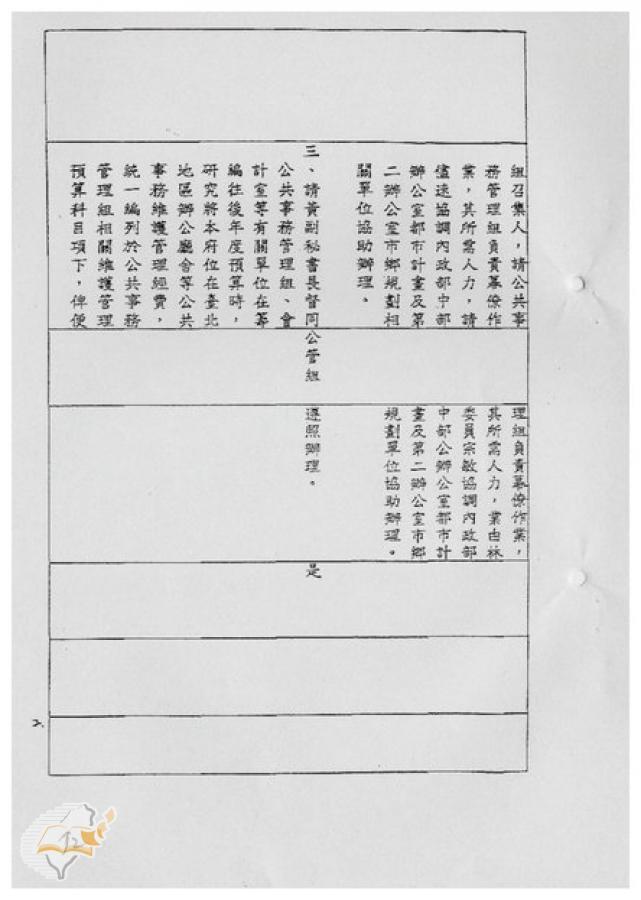 組召集人，請公共事
務管理組負責幕僚作
業，其所需人力，請
儘速協調內政部中部
辦公室都市計畫及第
二辦公室市鄉規劃相
關單位協助辦理。
三、請黃副秘書長督同
公共事務管理組、會
計室等有關單位在籌
編往後年度預算時，
研究將本府位在臺北
地區辦公廳舍等公共
事務維護管理經費，
統一編列於公共事務
管理組相關維護管理
預算科目項下，俾便
公管組
理組負責幕僚作業，
其所需人力，業由林
委員宗敏協調內政部
中部公辦公室都市計
畫及第二辦公室市鄉
規劃單位協助辦理。
遵照辦理。
是
2.
12